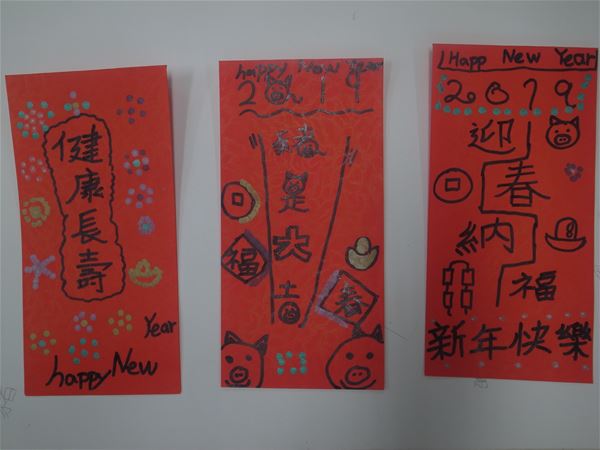 健康長壽
happy New Year
happy New Year
2019
豬是大吉
福
春
Happ New Year
2019
迎春納福
新年快樂